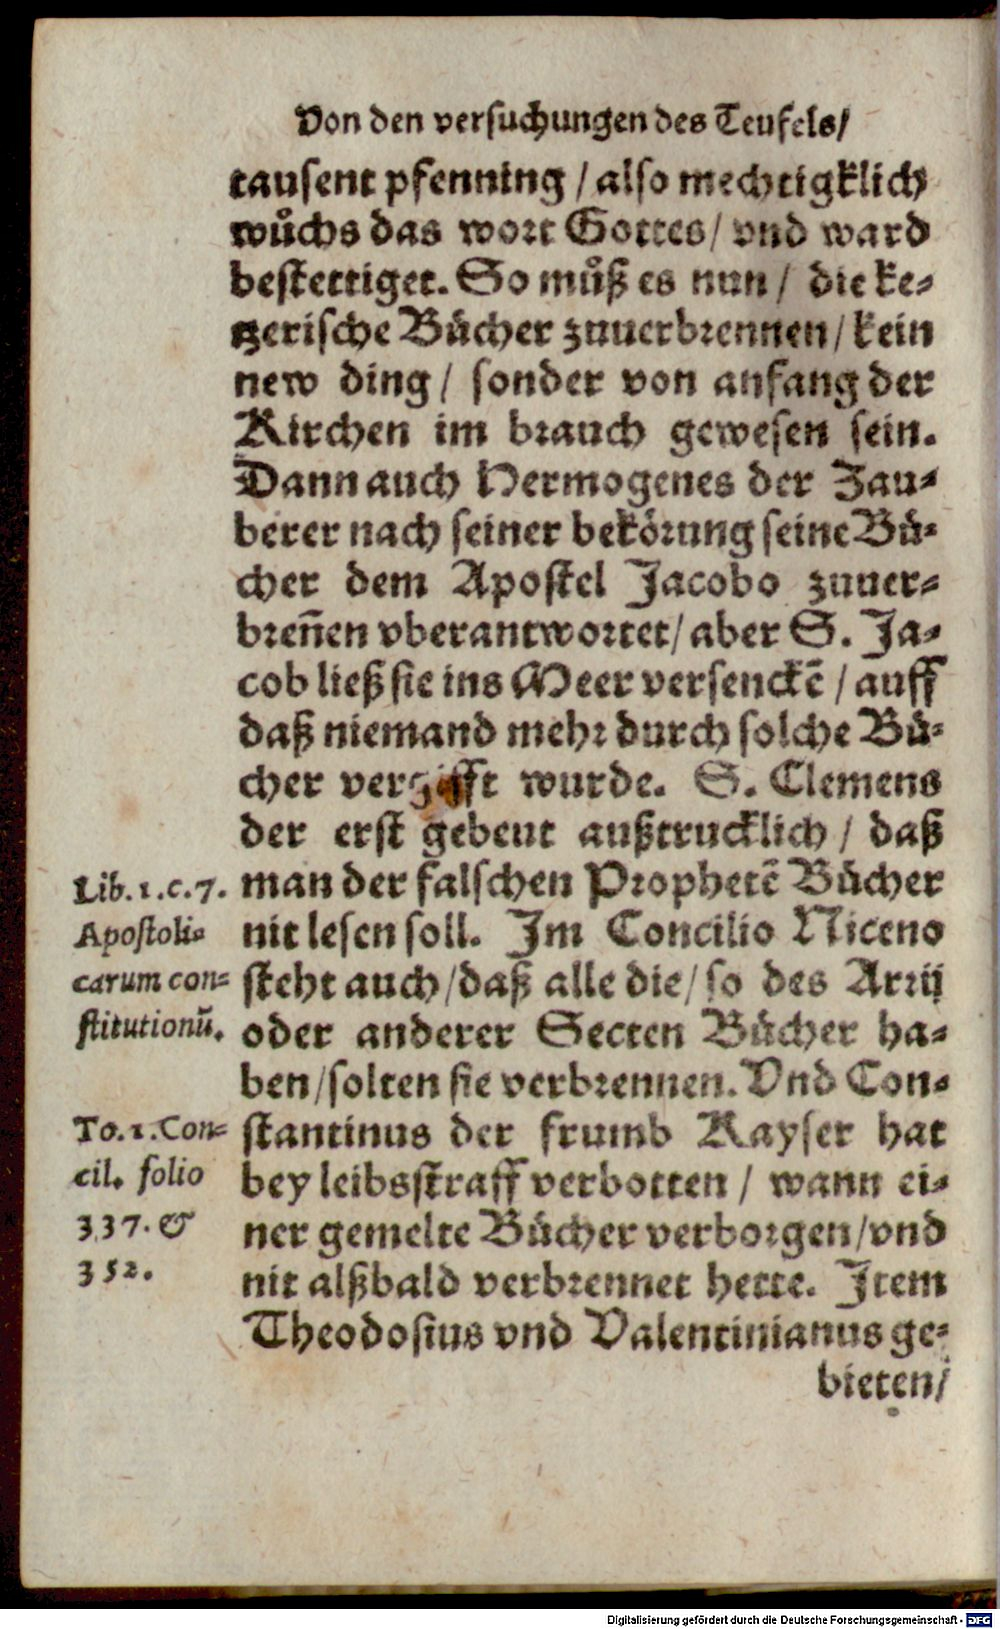 Von den versuchungen des Teufels/
tausent pfenning / also mechtigklich
wůchs das wort Gottes/ vnd ward
bestettiget. So můß es nun / die ke-
tzerische Bücher zuuerbrennen / kein
new ding / sonder von anfang der
Kirchen im brauch gewesen sein.
Dann auch Hermogenes der Zau-
berer nach seiner bekörung seine Bü-
cher dem Apostel Jacobo zuuer-
breñen vberantwortet/ aber S. Ja-
cob ließ sie ins Meer versenckẽ / auff
daß niemand mehr durch solche Bü-
cher vergifft wurde. S. Clemens
der erst gebeut außtrucklich / daß
man der falschen Prophetẽ Bücher
nit lesen soll. Im Concilio Niceno
steht auch/daß alle die/ so des Arrij
oder anderer Secten Bücher ha-
ben/solten sie verbrennen. Vnd Con-
stantinus der frumb Kayser hat
bey leibsstraff verbotten / wann ei-
ner gemelte Bücher verborgen/vnd
nit alßbald verbrennet hette. Item
Theodosius vnd Valentinianus ge-
bieten/
Lib. 1. c. 7.
Apostoli-
carum con-
stitutionũ.
To. 1. Con-
cil. folio
337. &
352.
Digitalisierung gefördert durch die Deutsche Forschungsgemeinschaft - DFG